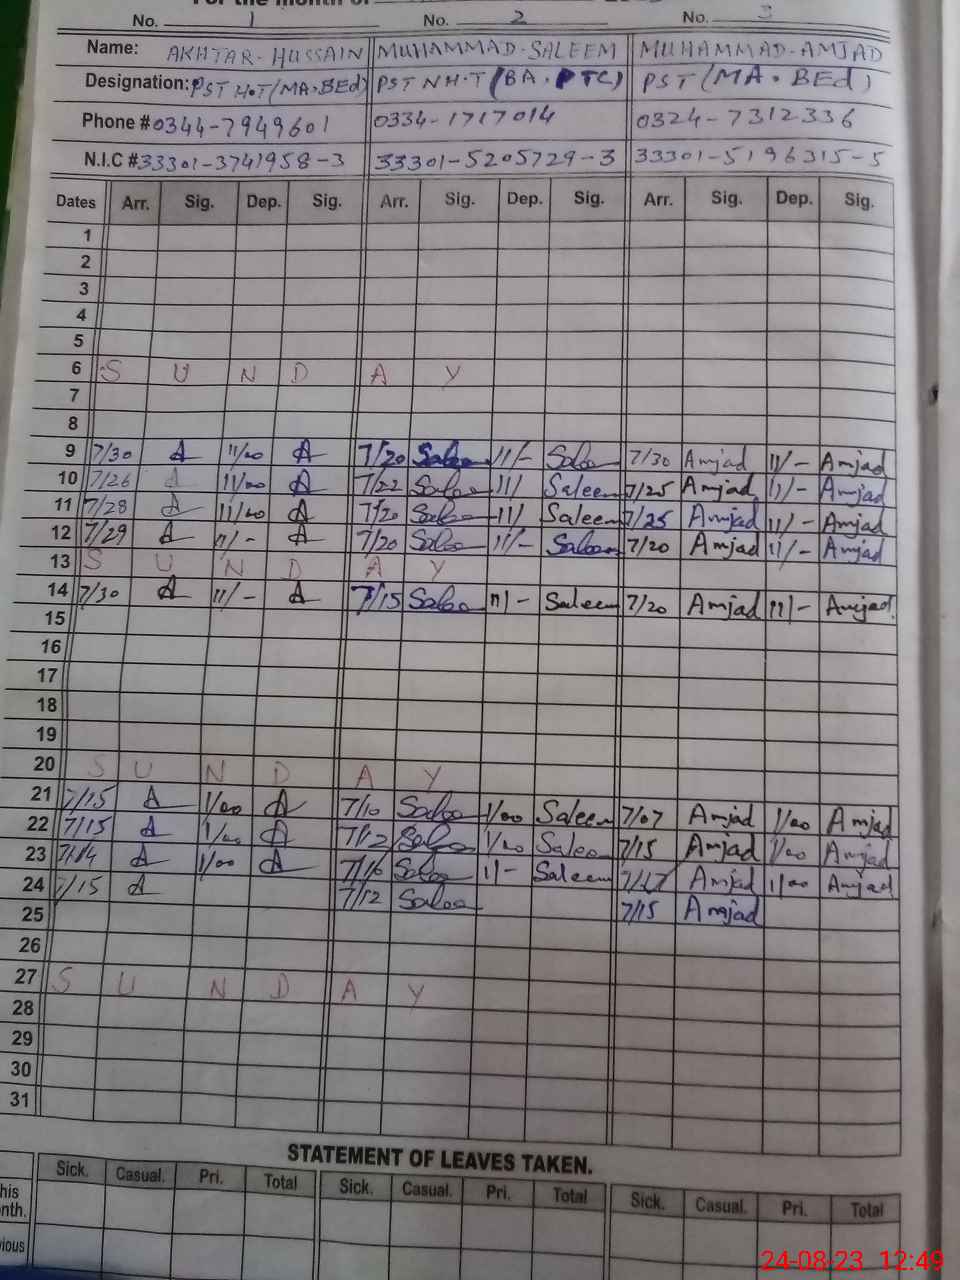 For the month of
No. 1 No. 2 No. 3
Name: AKHTAR-HUSSAIN MUHAMMAD-SALEEM MUHAMMAD-AMJAD
Designation: PST H.T (MA.BEd) PST NH.T (BA.PTC) PST (MA.BEd)
Phone # 0344-7949601 0334-1717014 0324-7312336
N.I.C # 33301-3741958-3 33301-5205729-3 33301-5196315-5
Dates Arr. Sig. Dep. Sig. Arr. Sig. Dep. Sig. Arr. Sig. Dep. Sig.
1
2
3
4
5
6 S U N D A Y
7
8
9 7/30 A 11/00 A 7/20 Salee 11/- Salee 7/30 Amjad 11/- Amjad
10 7/26 A 11/00 A 7/22 Salee 11/ Saleem 7/25 Amjad 11/- Amjad
11 7/28 A 11/00 A 7/20 Salee 11/ Saleem 7/25 Amjad 11/- Amjad
12 7/29 A 11/- A 7/20 Salee 11/- Saleem 7/20 Amjad 11/- Amjad
13 S U N D A Y
14 7/30 A 11/- A 7/15 Salee 11/- Saleem 7/20 Amjad 11/- Amjad
15
16
17
18
19
20 S U N D A Y
21 7/15 A 1/00 A 7/10 Salee 1/00 Saleem 7/07 Amjad 1/00 Amjad
22 7/15 A 1/00 A 7/12 Salee 1/00 Saleem 7/15 Amjad 1/00 Amjad
23 7/14 A 1/00 A 7/16 Salee 1/- Saleem 7/17 Amjad 1/00 Amjad
24 7/15 A 7/12 Salee 7/15 Amjad
25
26
27 S U N D A Y
28
29
30
31
STATEMENT OF LEAVES TAKEN.
Sick. Casual. Pri. Total Sick. Casual. Pri. Total Sick. Casual. Pri. Total
his
nth.
vious
24-08-23 12:49